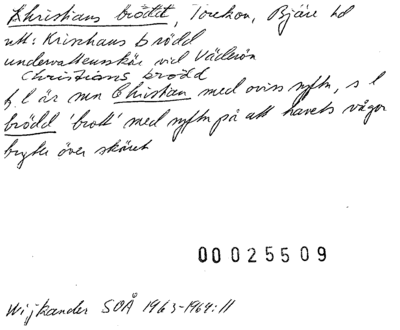 Christians brödd, Torekov, Bjäre hd
utt: Krischans brödd
undervattensskär vid Väderön
Christians brodd
f l är mn Christian med oviss syftn, s l
brödd 'brott' med syftn på att havets vågor
bryts över skäret
00025509
Wijkander SOÅ 1963-1964:11